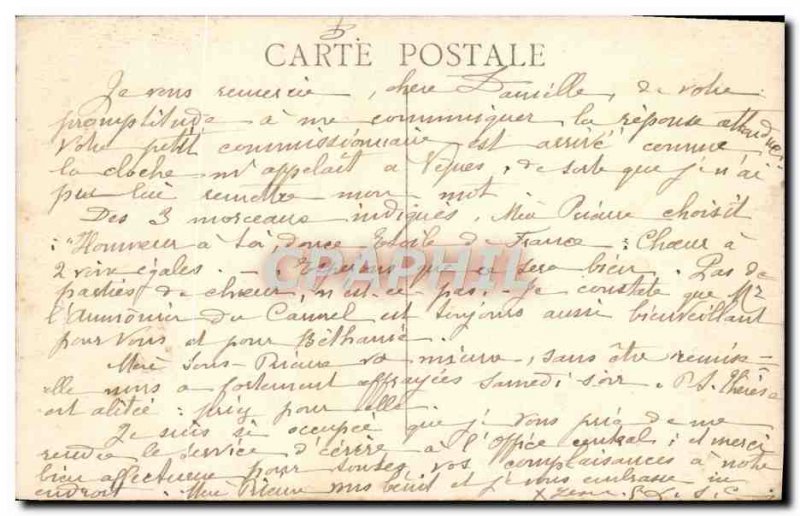 CARTE POSTALE
Je vous remercie, chère Danielle, de votre
promptitude à me communiquer la réponse attendue.
Votre petit commissionnaire est arrivé comme
la cloche m'appelait à Vêpres, de sorte que je n'ai
pu lui remettre mon mot.
Des 3 morceaux indiqués, Mère Prieure choisit
: "Honneur à toi, douce Etoile de France : Chœur à
2 voix égales. - Espérons que ce sera bien. Pas de
parties de chœur, n'est-ce pas. - Je constate que Mr
l'Aumônier du Carmel est toujours aussi bienveillant
pour vous et pour Béthanie.
Mère Sous-Prieure va mieux, sans être remise -
elle nous a fortement effrayées samedi soir. P. S. Thérèse
est alitée : priez pour elle.
Je suis si occupée que je vous prie de me
rendre le service d'écrire à l'Office central ; et merci
bien affectueux pour toutes vos complaisances à notre
endroit. Mère Prieure vous bénit et je vous embrasse in
CPAPHIL